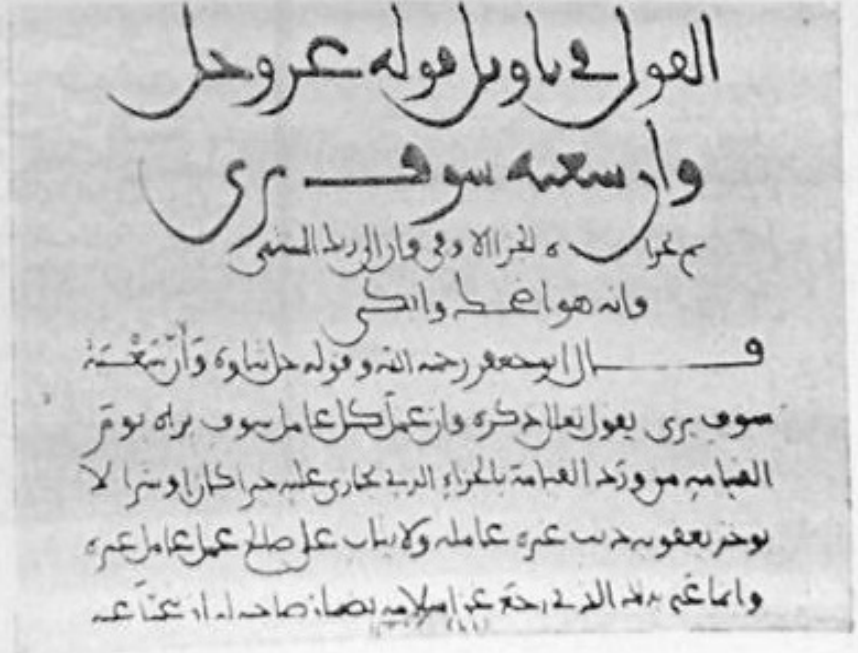 القول في تاويل قوله عز وجل
وان سعيه سوف يرى
ثم يجزاه الجزا الاوفى وان الى ربك المنتهى
وانه هو اضحك وابكى
قال ابو جعفر رحمه الله وقوله جل ثناوه وَأَنَّ سَعْيَهُ
سوف يرى يقول تعالى ذكره وان عمل كل عامل سوف يراه يوم
القيامه من ورد القيامة بالجزاء الذي يجازى عليه خيرا كان او شرا لا
يوخذ بعقوبه ذنب غيره عامله ولا يثاب على صالح عمل عامل غيره
وانما عني بذلك الذي رجع عن اسلامه بضمان صاحبه له ان يتحمل عنه